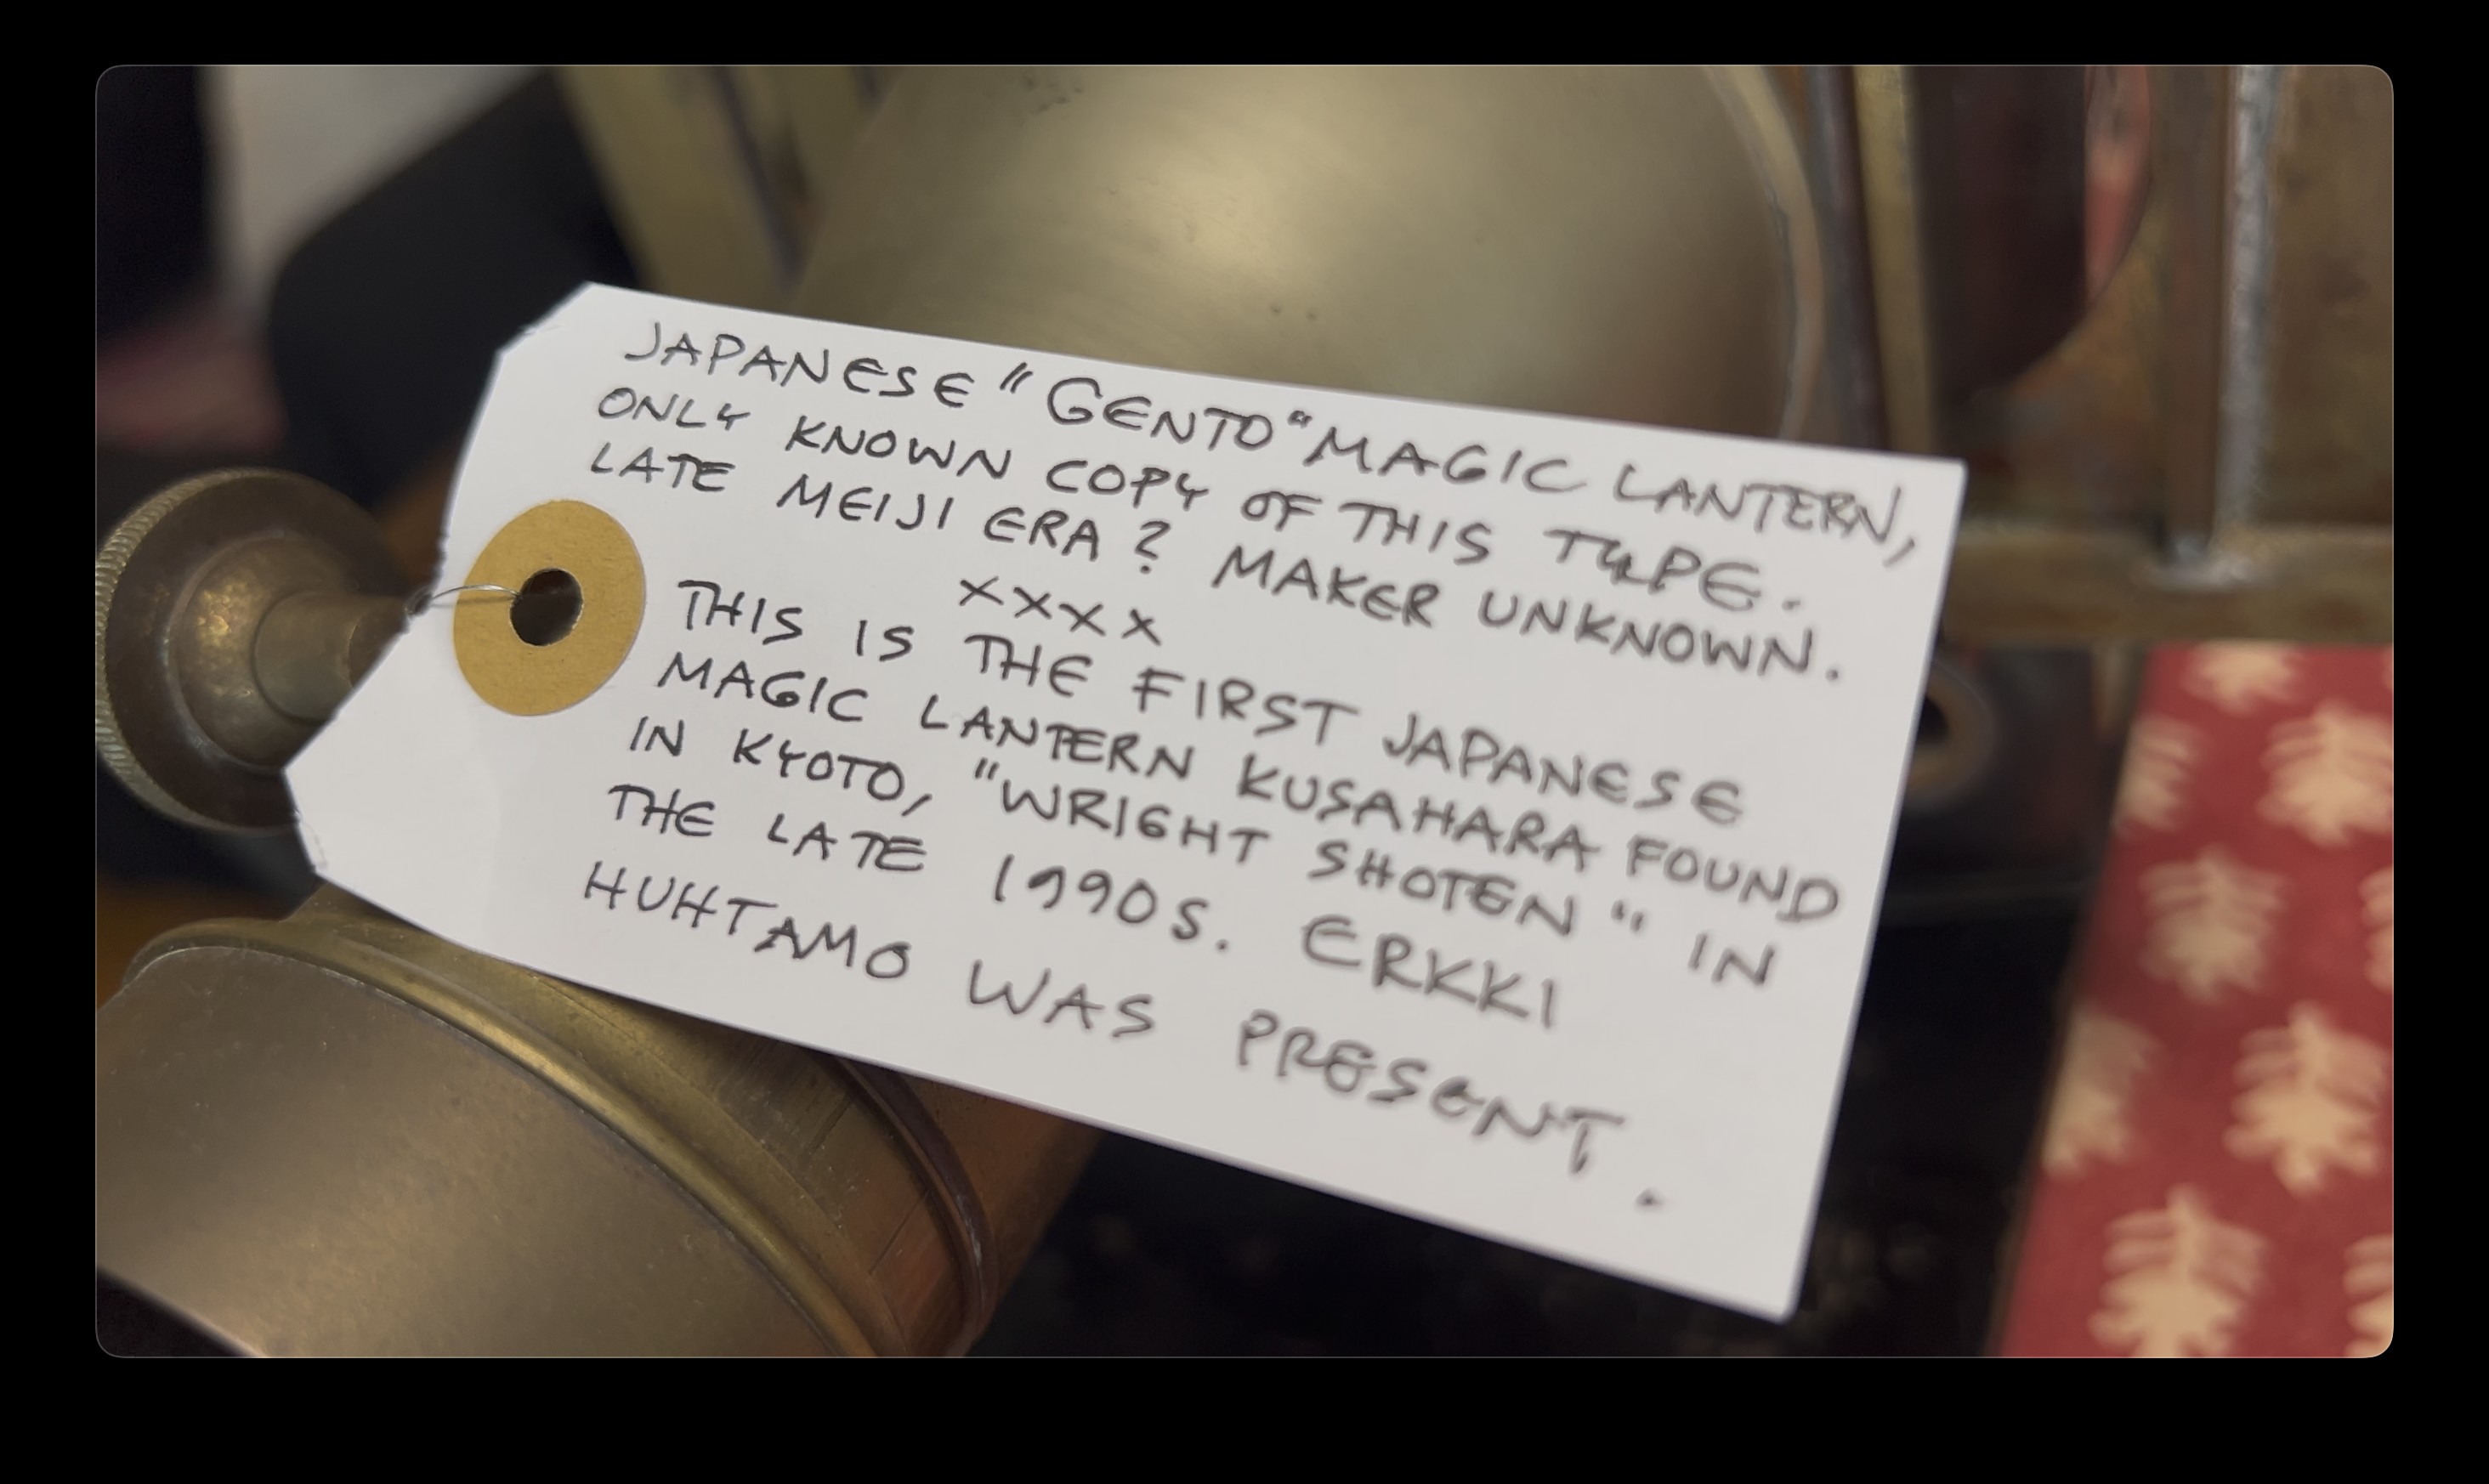 JAPANESE "GENTO" MAGIC LANTERN,
ONLY KNOWN COPY OF THIS TYPE.
LATE MEIJI ERA? MAKER UNKNOWN.
XXXX
THIS IS THE FIRST JAPANESE
MAGIC LANTERN KUSAHARA FOUND
IN KYOTO, "WRIGHT SHOTEN" IN
THE LATE 1990S. ERKKI
HUHTAMO WAS PRESENT.